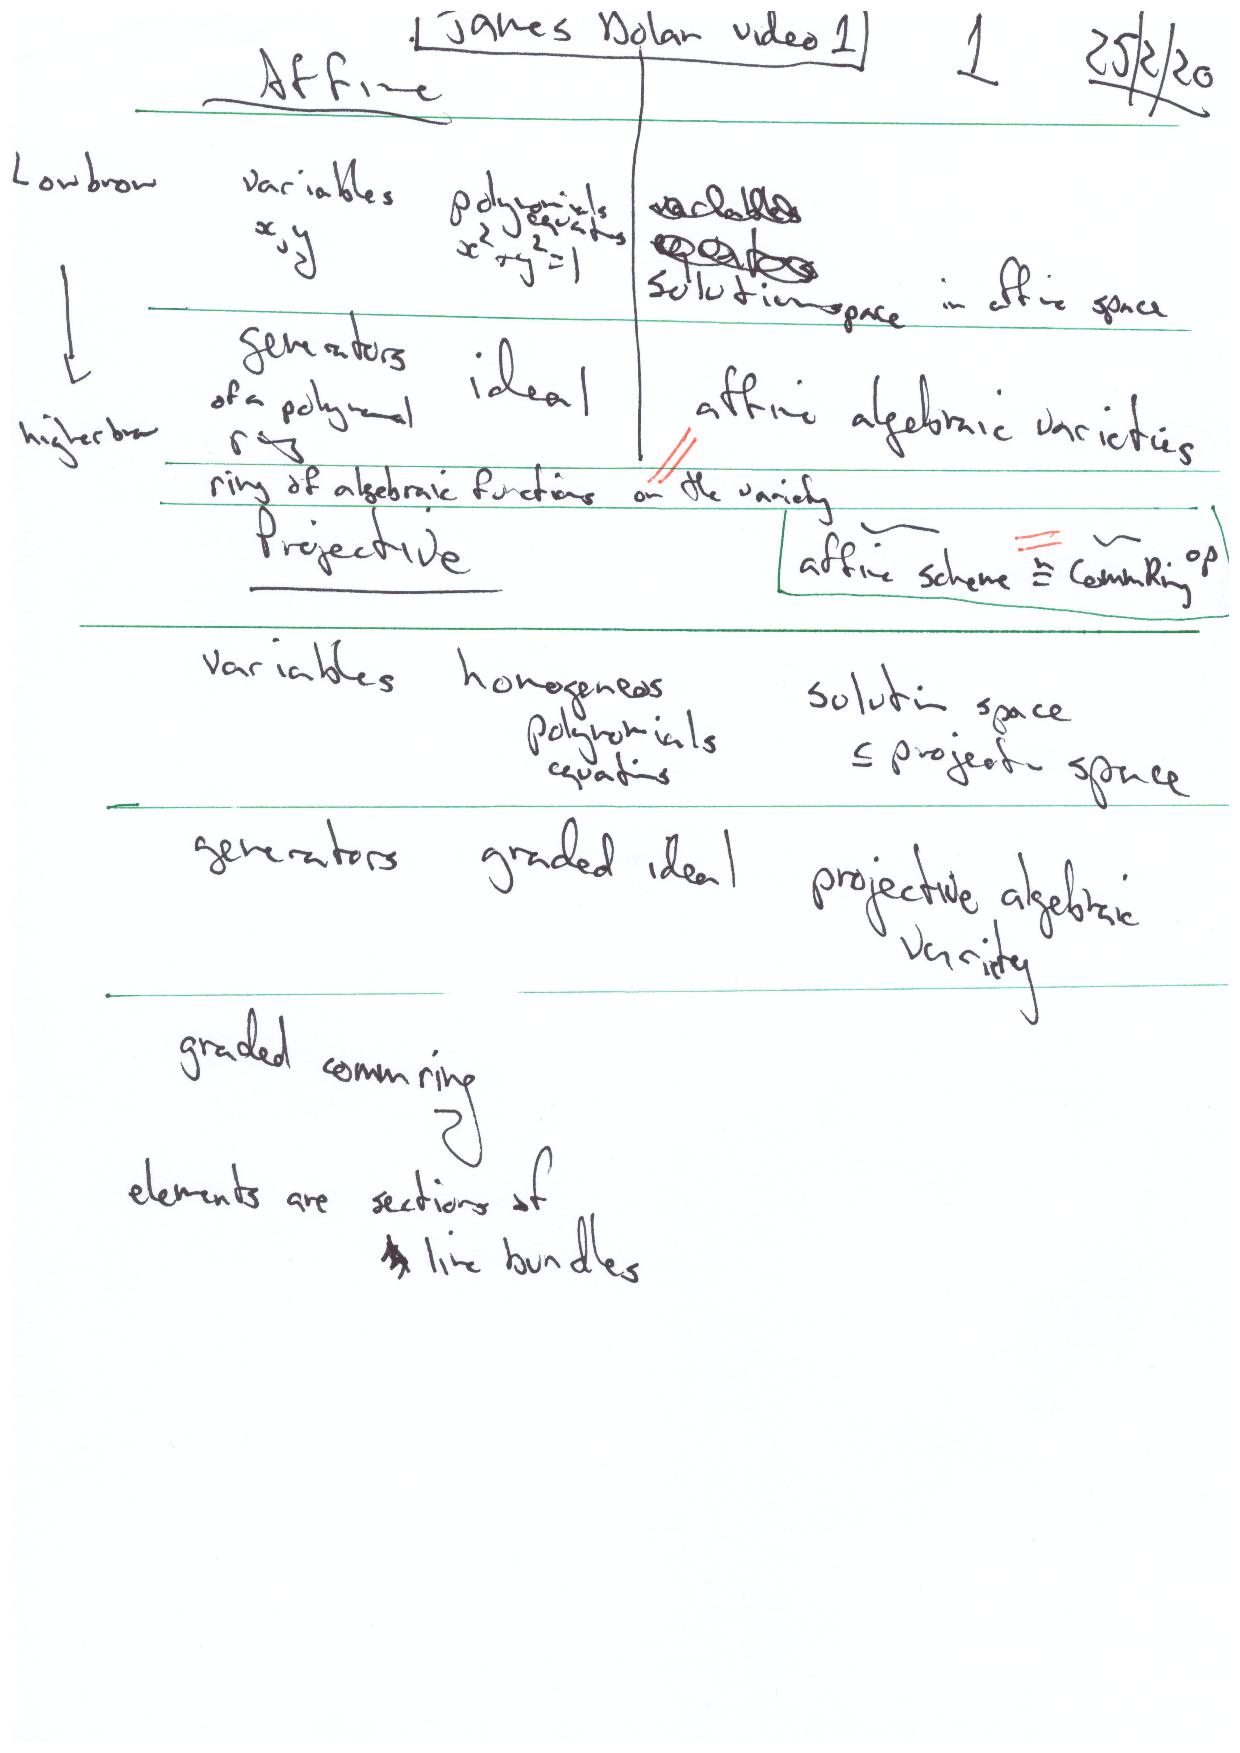 James Dolan video 1 1 25/2/20
Affine
Lowbrow variables polynomials
equations
x, y x² + y² = 1
solution space in affine space
generators ideal
of a polynomial
ring
affine algebraic varieties
higherbrow
ring of algebraic functions on the variety
Projective
affine scheme ≅ CommRing^op
variables homogeneos solution space
polynomials
equations
⊆ project~ space
generators graded ideal projective algebraic
variety
graded comm ring
elements are sections of
line bundles